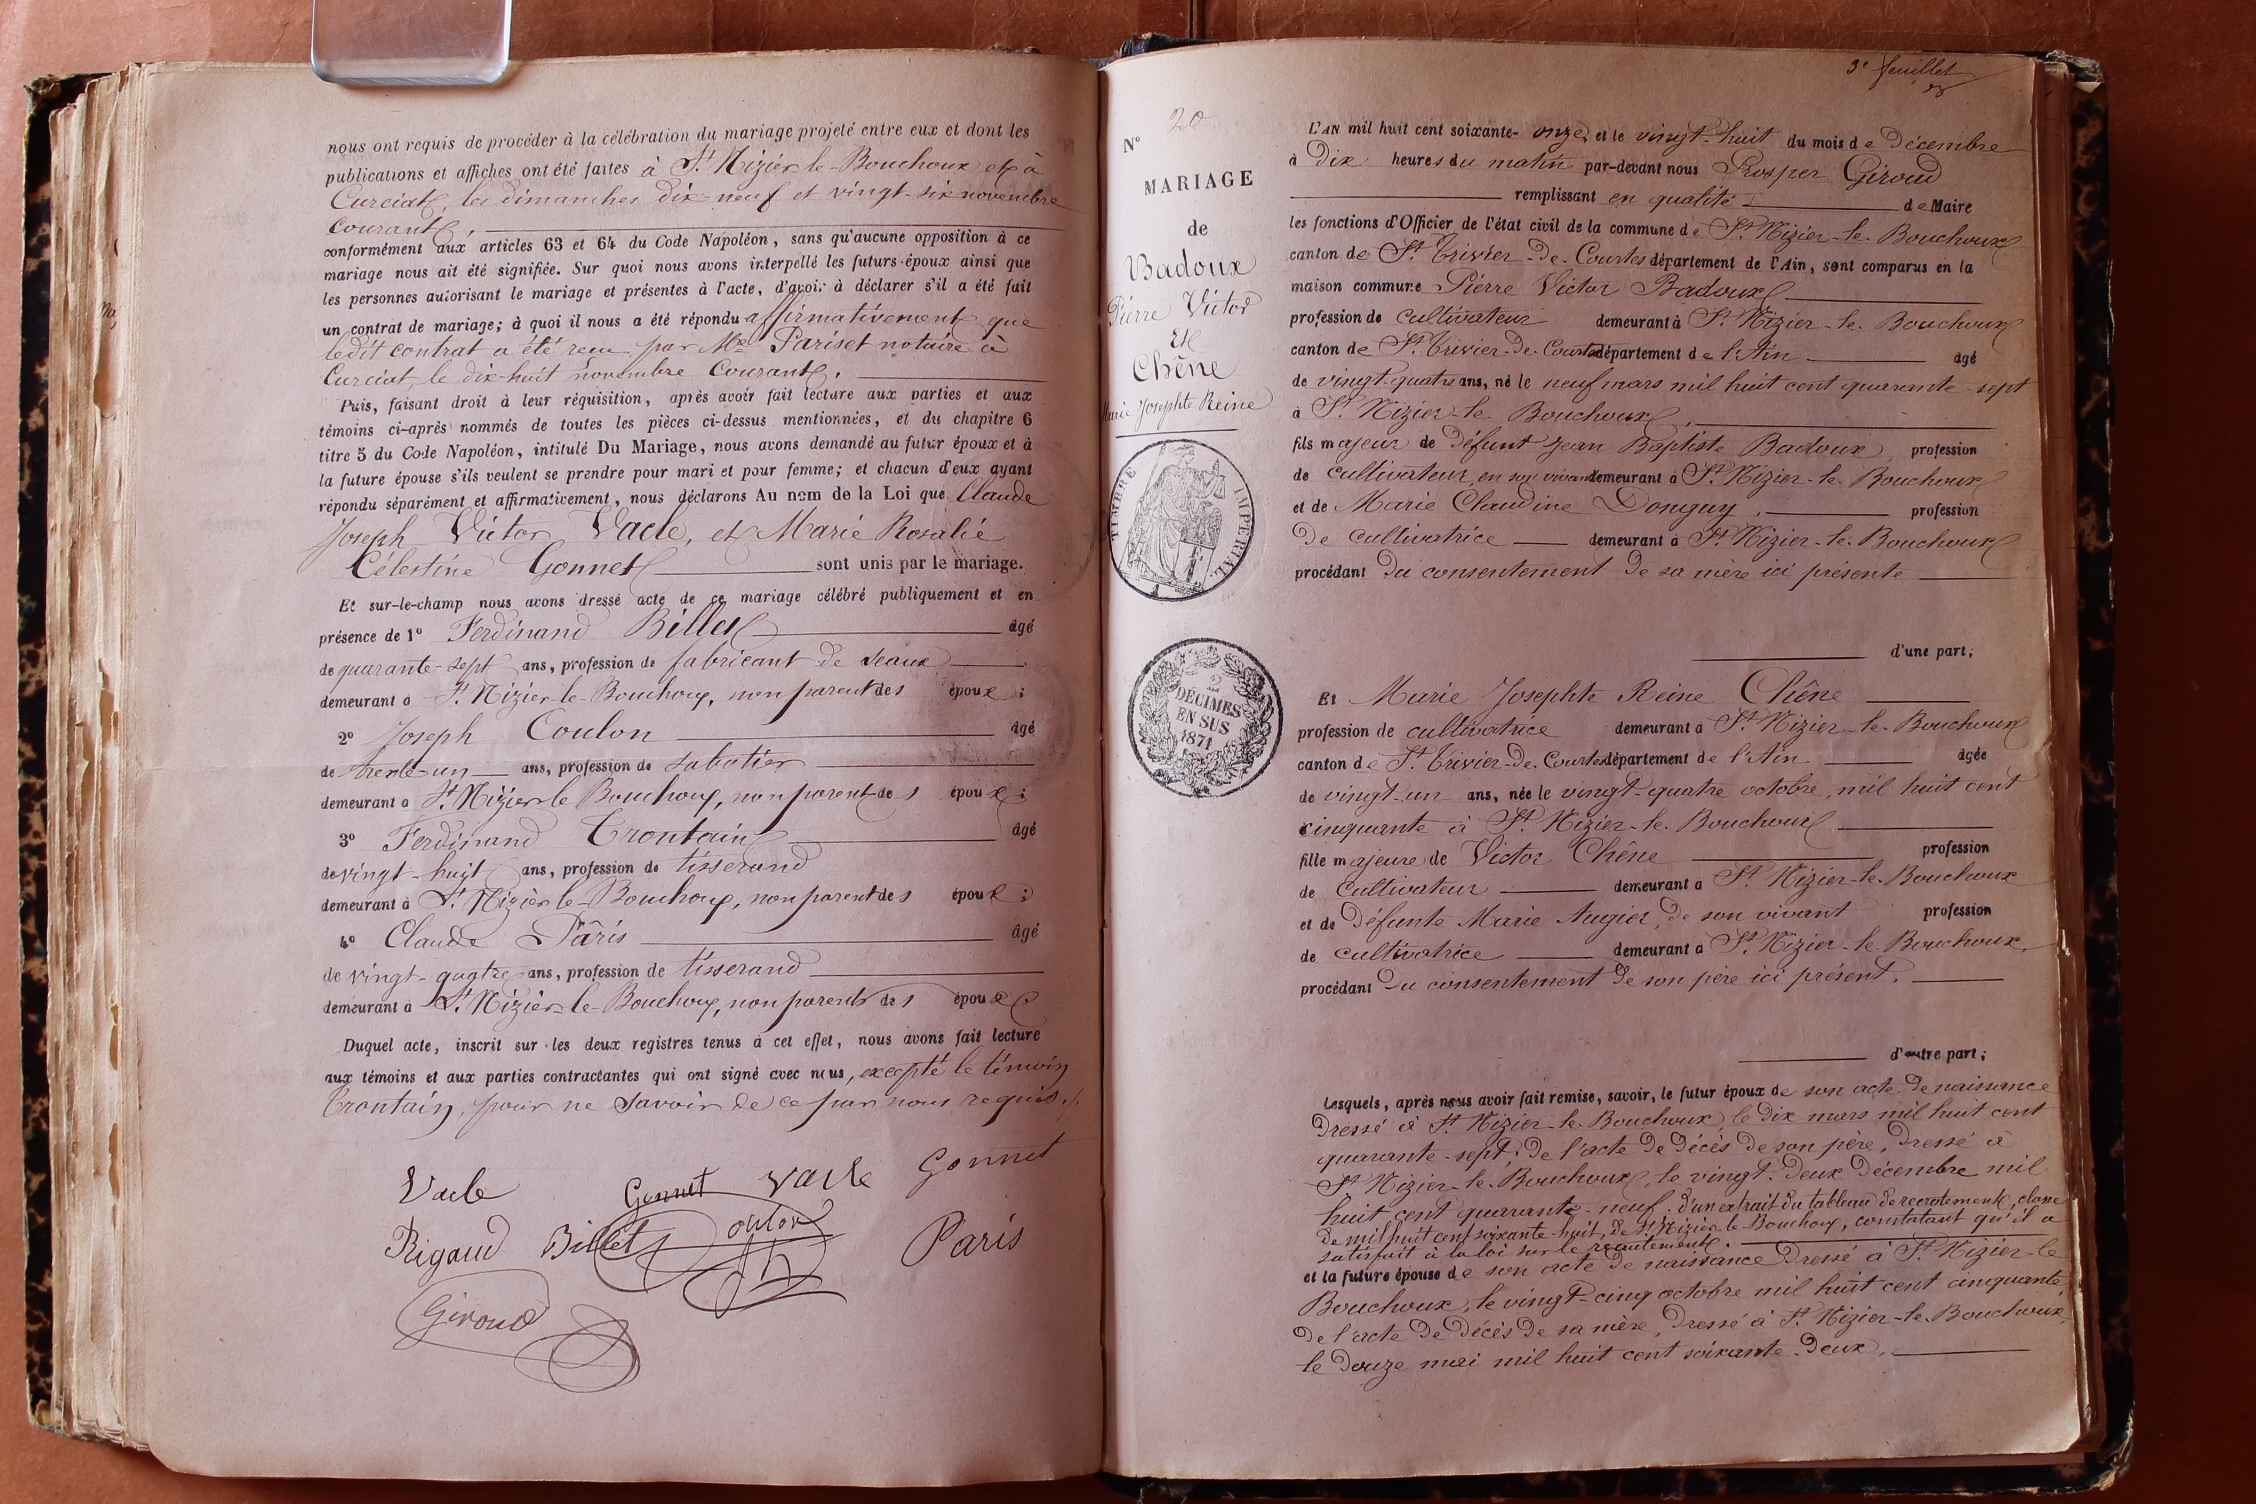 nous ont requis de procéder à la célébration du mariage projeté entre eux et dont les
publications et affiches ont été faites à St Nizier-le-Bouchoux et à
Curciat, les dimanches dix-neuf et vingt-six novembre
courant,
conformément aux articles 63 et 64 du Code Napoléon, sans qu'aucune opposition à ce
mariage nous ait été signifiée. Sur quoi nous avons interpellé les futurs époux ainsi que
les personnes autorisant le mariage et présentes à l'acte, d'avoir à déclarer s'il a été fait
un contrat de mariage; à quoi il nous a été répondu affirmativement que
ledit contrat a été reçu par Me Pariset notaire à
Curciat, le dix-huit novembre courant.
Puis, faisant droit à leur réquisition, après avoir fait lecture aux parties et aux
témoins ci-après nommés de toutes les pièces ci-dessus mentionnées, et du chapitre 6
titre 5 du Code Napoléon, intitulé Du Mariage, nous avons demandé au futur époux et à
la future épouse s'ils veulent se prendre pour mari et pour femme; et chacun d'eux ayant
répondu séparément et affirmativement, nous déclarons Au nom de la Loi que Claude
Joseph Victor Vacle, et Marie Rosalie
Célestine Gonnet sont unis par le mariage.
Et sur-le-champ nous avons dressé acte de ce mariage célébré publiquement et en
présence de 1º Ferdinand Billet âgé
de quarante-sept ans, profession de fabricant de seaux
demeurant à St Nizier-le-Bouchoux, non parent des époux;
2º Joseph Coulon âgé
de trente-un ans, profession de sabotier
demeurant à St Nizier-le-Bouchoux, non parent des époux;
3º Ferdinand Trontain âgé
de vingt-huit ans, profession de tisserand
demeurant à St Nizier-le-Bouchoux, non parent des époux;
4º Claude Pâris âgé
de vingt-quatre ans, profession de tisserand
demeurant à St Nizier-le-Bouchoux, non parent des époux
Duquel acte, inscrit sur les deux registres tenus à cet effet, nous avons fait lecture
aux témoins et aux parties contractantes qui ont signé avec nous, excepté le témoin
Trontain, pour ne savoir de ce par nous requis.
Vacle Gonnet Vacle Gonnet
Rigaud Billet Coulon Paris
Giroud
3e feuillet
Nº 20
MARIAGE
de
Badoux
Pierre Victor
Et
Chêne
Marie Josephte Reine
TIMBRE IMPÉRIAL
2
DÉCIMES
EN SUS
1871
L'AN mil huit cent soixante-onze, et le vingt-huit du mois de Décembre
à Dix heures du matin par-devant nous Prosper Giroud
remplissant en qualité de Maire
les fonctions d'Officier de l'état civil de la commune de St Nizier-le-Bouchoux
canton de St Trivier-de-Courtes département de l'Ain, sont comparus en la
maison commune Pierre Victor Badoux
profession de cultivateur demeurant à St Nizier-le-Bouchoux
canton de St Trivier-de-Courtes département de l'Ain âgé
de vingt-quatre ans, né le neuf mars mil huit cent quarante-sept
à St Nizier-le-Bouchoux,
fils majeur de défunt Jean Baptiste Badoux, profession
de cultivateur, en son vivant demeurant à St Nizier-le-Bouchoux
et de Marie Claudine Donguy, profession
De cultivatrice demeurant à St Nizier-le-Bouchoux
procédant du consentement de sa mère ici présente
d'une part;
Et Marie Josephte Reine Chêne
profession de cultivatrice demeurant à St Nizier-le-Bouchoux
canton de St Trivier-de-Courtes département de l'Ain âgée
de vingt-un ans, née le vingt-quatre octobre, mil huit cent
cinquante à St Nizier-le-Bouchoux
fille majeure de Victor Chêne profession
de cultivateur demeurant à St Nizier-le-Bouchoux
et de défunte Marie Augier, de son vivant profession
de cultivatrice demeurant à St Nizier-le-Bouchoux,
procédant du consentement de son père ici présent.
d'autre part;
Lesquels, après nous avoir fait remise, savoir, le futur époux de son acte de naissance
dressé à St Nizier-le-Bouchoux, le dix mars mil huit cent
quarante-sept; de l'acte de décès de son père, dressé à
St Nizier-le-Bouchoux, le vingt-deux décembre mil
huit cent quarante-neuf; d'un extrait du tableau de recrutement, classe
de mil huit cent soixante-huit, de St Nizier-le-Bouchoux, constatant qu'il a
satisfait à la loi sur le recrutement.
et la future épouse de son acte de naissance dressé à St Nizier-le
Bouchoux, le vingt-cinq octobre mil huit cent cinquante,
De l'acte de décès de sa mère, dressé à St Nizier-le-Bouchoux,
le douze mai mil huit cent soixante-deux.